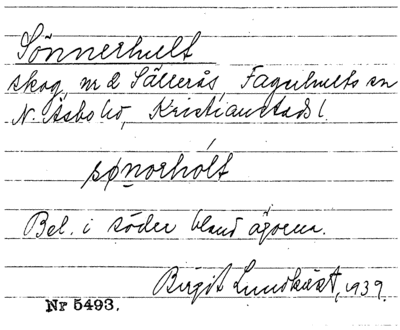 Sönnerhult
skog, nr 2 Sällerås, Fagerhults sn
N. Åsbo hd, Kristianstads l.
sønorhólt
Bel. i söder bland ägorna.
Birgit Lundkvist, 1939.
Nr 5493.